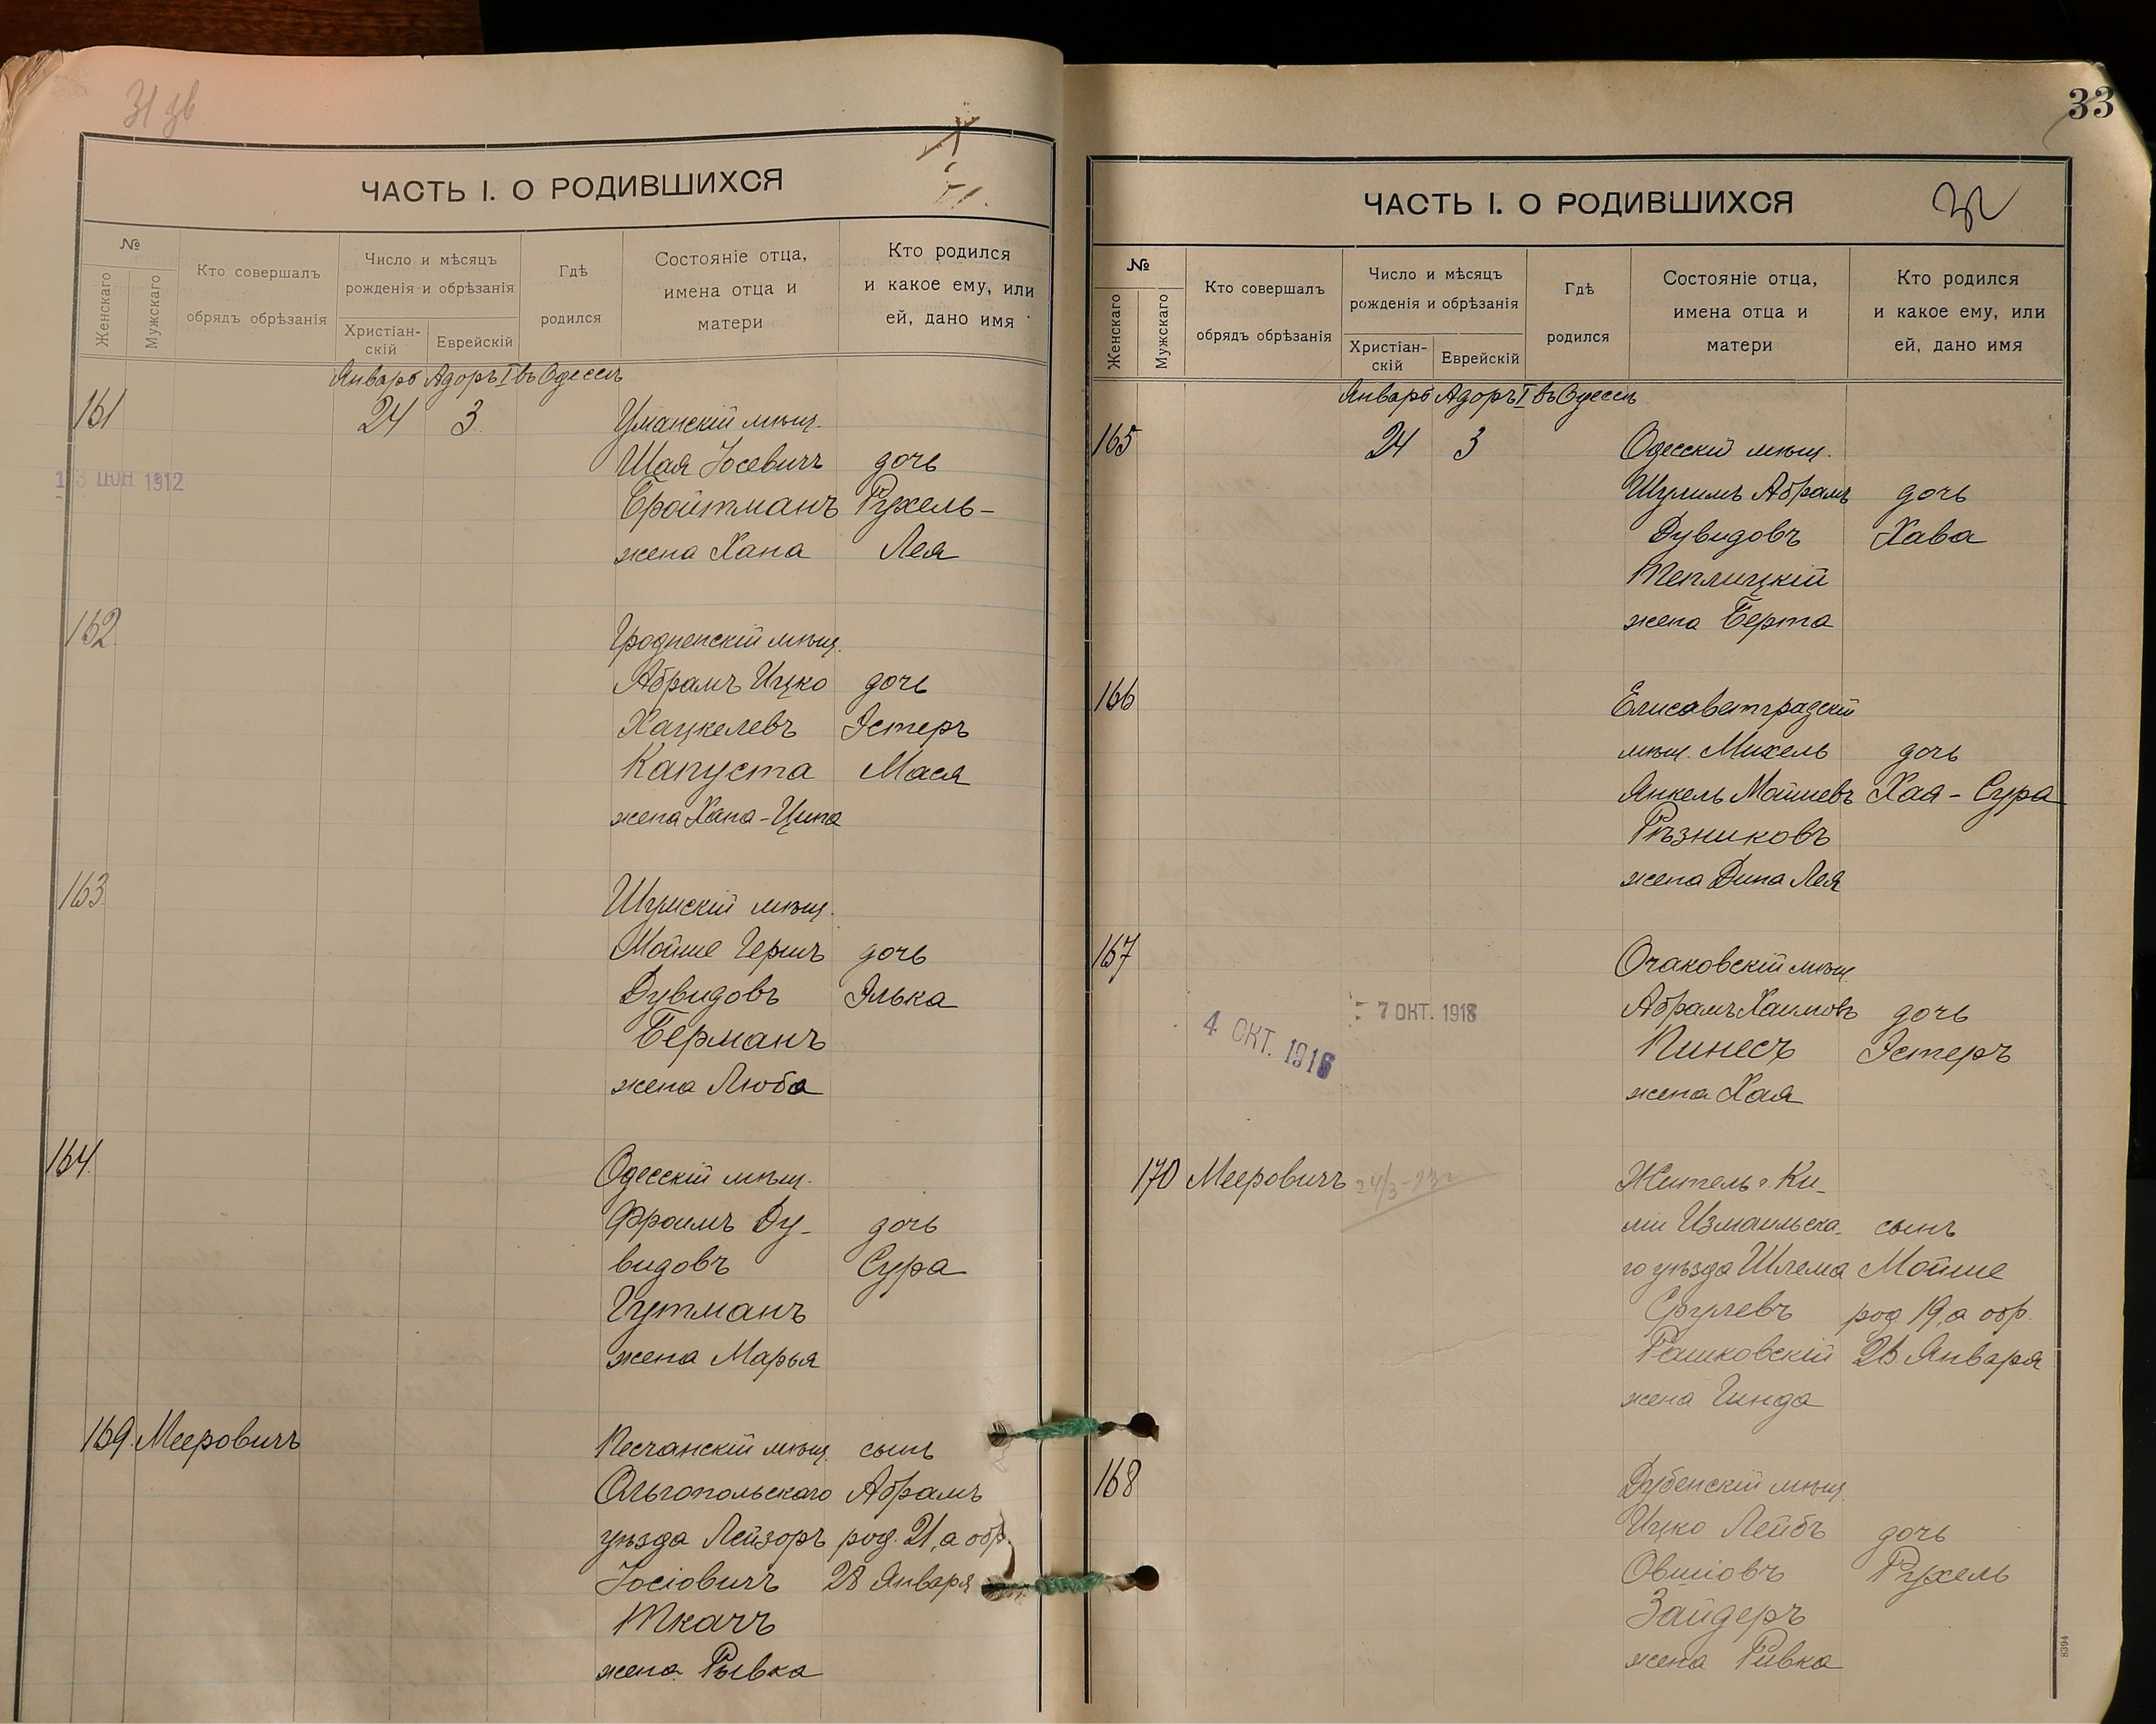 31 зв
ЧАСТЬ I. О РОДИВШИХСЯ
№
Женскаго
Мужскаго
Кто совершалъ
обрядъ обрѣзанія
Число и мѣсяцъ
рожденія и обрѣзанія
Христіан-
скій
Еврейскій
Гдѣ
родился
Состояніе отца,
имена отца и
матери
Кто родился
и какое ему, или
ей, дано имя
Январь Адоръ I въ Одессѣ
161 24 3 Уманскій мѣщ.
Шая Іосевичъ дочь
13 ІЮН 1912
Бройтманъ Рухель-
жена Хана Лея
162. Гродненскій мѣщ.
Абрамъ Ицко дочь
Хацкелевъ Эстеръ
Капуста Мася
жена Хана-Ципа
163. Шумскій мѣщ.
Мойше Гершъ дочь
Дувидовъ Элька
Берманъ
жена Люба
164. Одесскій мѣщ.
Фроимъ Ду- дочь
видовъ Сура
Гутманъ
жена Марья
169. Мееровичъ Песчанскій мѣщ. сынъ
Ольгопольскаго Абрамъ
уѣзда Лейзоръ род. 21, а обр.
Іосіовичъ 28 Января
Ткачъ
жена Рывка
33
ЧАСТЬ I. О РОДИВШИХСЯ
№
Женскаго
Мужскаго
Кто совершалъ
обрядъ обрѣзанія
Число и мѣсяцъ
рожденія и обрѣзанія
Христіан-
скій
Еврейскій
Гдѣ
родился
Состояніе отца,
имена отца и
матери
Кто родился
и какое ему, или
ей, дано имя
Январь Адоръ I въ Одессѣ
165 24 3 Одесскій мѣщ.
Шулимъ Абрамъ дочь
Дувидовъ Хава
Теплицкій
жена Берта
166 Елисаветградскій
мѣщ. Михель дочь
Янкель Мошиевъ Хая-Сура
Рѣзниковъ
жена Дина Лея
167 Очаковскій мѣщ.
Абрамъ Хаимовъ дочь
7 ОКТ. 1918
4 ОКТ. 1916
Пинесъ Эстеръ
жена Хая
170 Мееровичъ 24/3-23г Житель г. Ки-
ліи Измаильска- сынъ
го уѣзда Шлема Мойше
Срулевъ род 19, а обр.
Рашковскій 26 Января
жена Гинда
168 Дубенскій мѣщ.
Ицко Лейбъ дочь
Овшіовъ Рухель
Зайдеръ
жена Ривка
8394